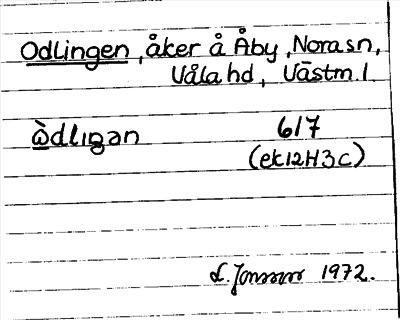 Odlingen, åker å Åby, Nora sn,
Våla hd, Västm. l.
ὼdlıgən 617
(ek12H3c)
L. Jonsson 1972.